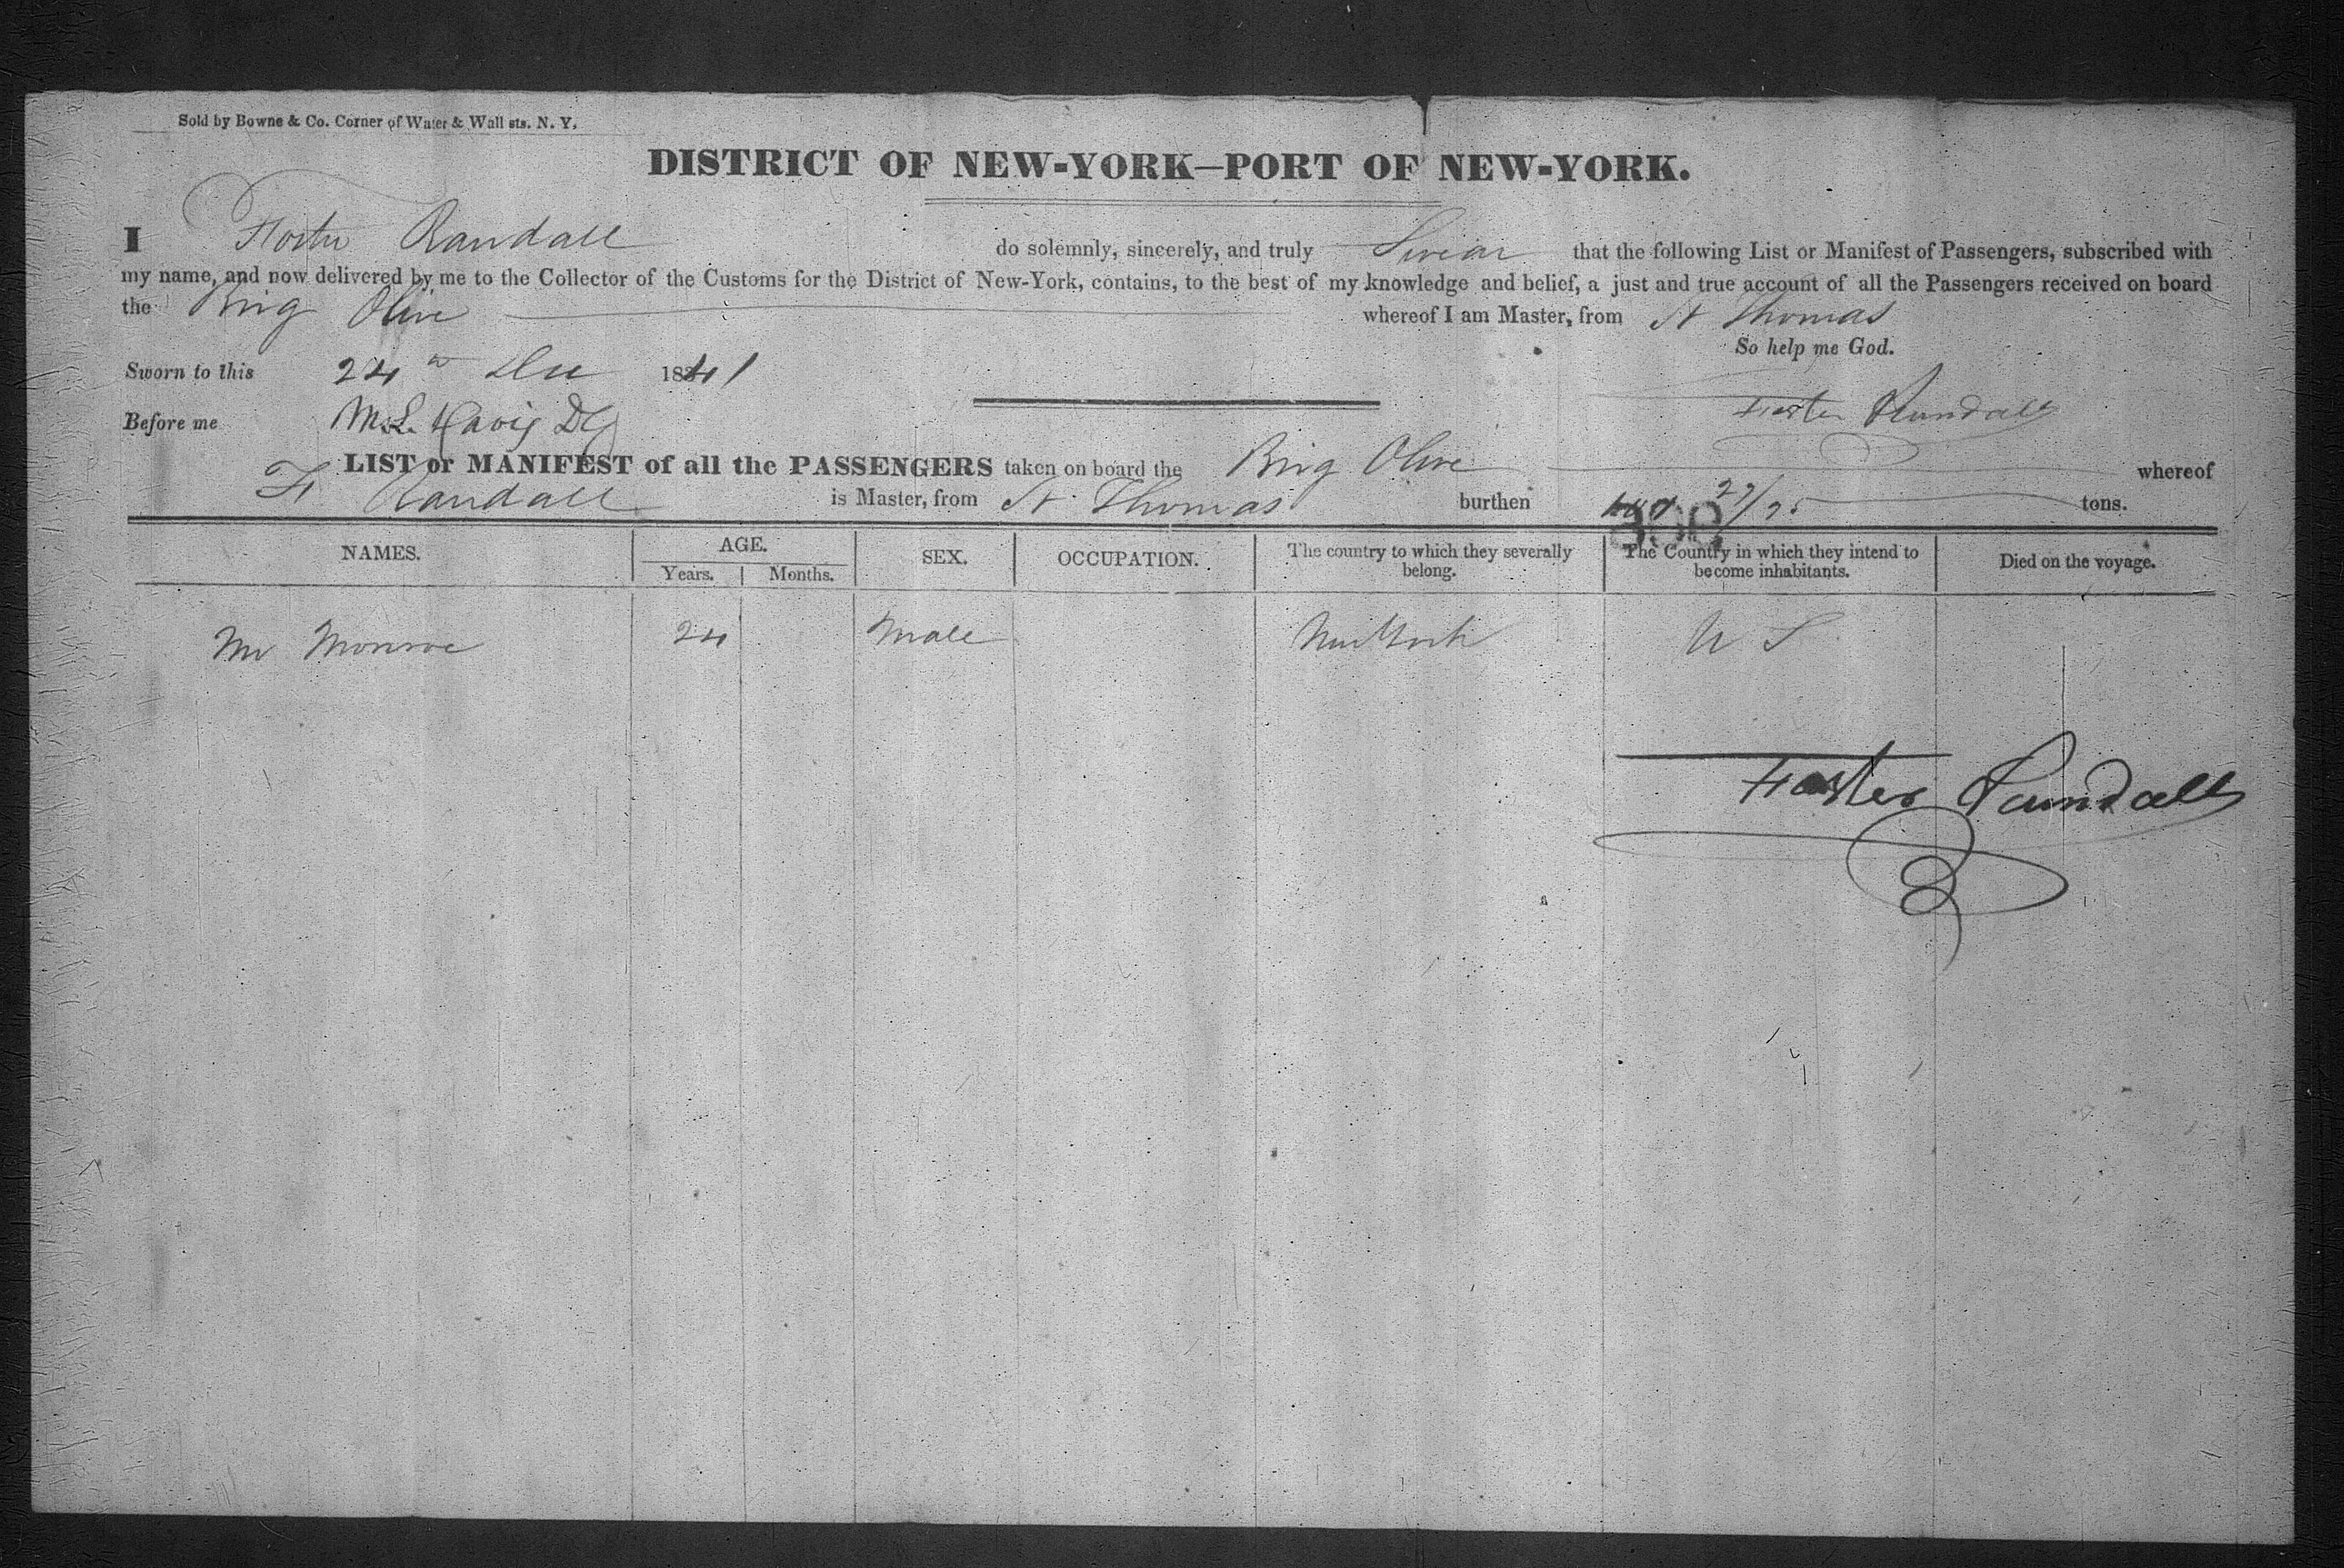 Sold by Bowne & Co. Corner of Water & Wall sts. N. Y.
DISTRICT OF NEW-YORK—PORT OF NEW-YORK.
I Foster Randall do solemnly, sincerely, and truly Swear that the following List or Manifest of Passengers, subscribed with
my name, and now delivered by me to the Collector of the Customs for the District of New-York, contains, to the best of my knowledge and belief, a just and true account of all the Passengers received on board
the Brig Olive whereof I am Master, from St Thomas
So help me God.
Sworn to this 24th Dec 1841
Foster Randall
Before me M.L. Davis DC
LIST or MANIFEST of all the PASSENGERS taken on board the Brig Olive whereof
F Randall is Master, from St Thomas burthen 27/95 tons.
NAMES. AGE. SEX. OCCUPATION. The country to which they severally belong. The Country in which they intend to become inhabitants. Died on the voyage.
Years. Months.
Mr Monroe 24 Male New York U S
Foster Randall